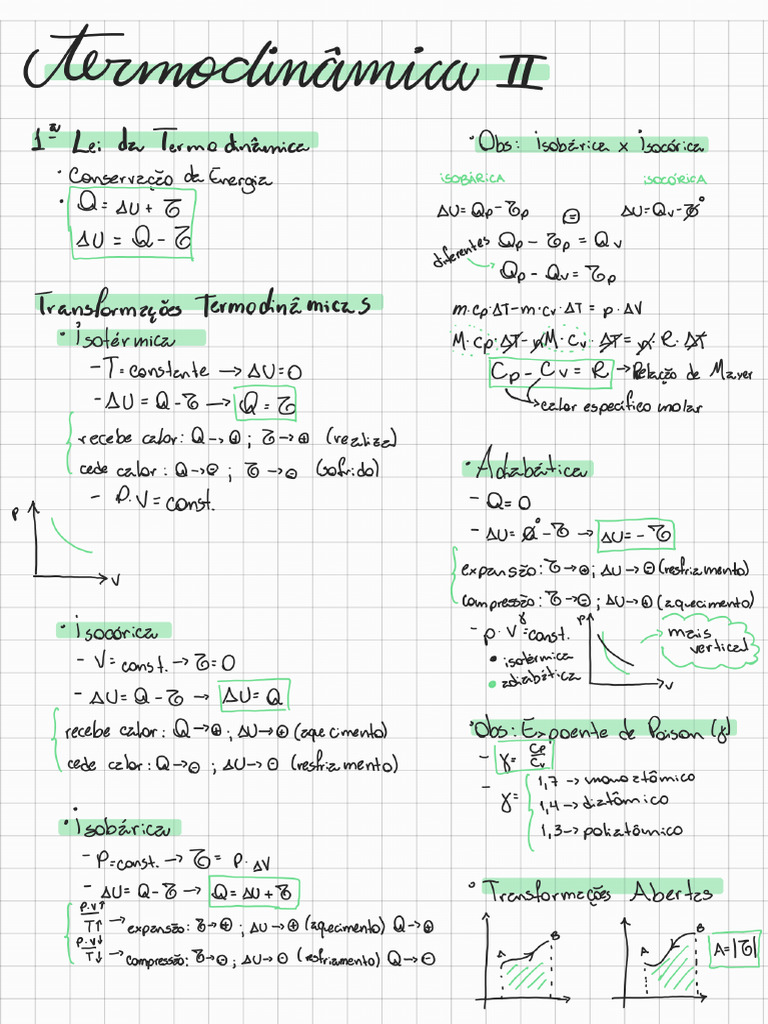 Termodinâmica II
1ª Lei da Termodinâmica
· Conservação da Energia
· Q = ΔU + τ
ΔU = Q - τ
Transformações Termodinâmicas
· isotérmica
- T = constante → ΔU = 0
- ΔU = Q - τ → Q = τ
recebe calor: Q → ⊕ ; τ → ⊕ (realiza)
cede calor: Q → ⊖ ; τ → ⊖ (sofrido)
- P.V = const.
P
V
· isocórica
- V = const. → τ = 0
- ΔU = Q - τ → ΔU = Q
recebe calor: Q → ⊕ ; ΔU → ⊕ (aquecimento)
cede calor: Q → ⊖ ; ΔU → ⊖ (resfriamento)
· isobárica
- P = const. → τ = P.ΔV
- ΔU = Q - τ → Q = ΔU + τ
P.V↑/T↑ → expansão: τ → ⊕ ; ΔU → ⊕ (aquecimento) Q → ⊕
P.V↓/T↓ → compressão: τ → ⊖ ; ΔU → ⊖ (resfriamento) Q → ⊖
· Obs: isobárica x isocórica
ISOBÁRICA ISOCÓRICA
ΔU = Qp - τp = ΔU = Qv - τ⁰
diferentes Qp - τp = Qv
Qp - Qv = τp
m.cp.ΔT - m.cv.ΔT = p.ΔV
M.cp.ΔT - nM.cv.ΔT = n.R.ΔT
Cp - Cv = R → Relação de Mayer
→ calor específico molar
· Adiabática
- Q = 0
- ΔU = Q⁰ - τ → ΔU = - τ
expansão: τ → ⊕ ; ΔU → ⊖ (resfriamento)
compressão: τ → ⊖ ; ΔU → ⊕ (aquecimento)
- p.V^γ = const.
• isotérmica
• adiabática
P
V
mais
vertical
· Obs: Expoente de Poison (γ)
- γ = Cp/Cv
- γ =
1,7 → monoatômico
1,4 → diatômico
1,3 → poliatômico
· Transformações Abertas
A B
A B
A = |τ|